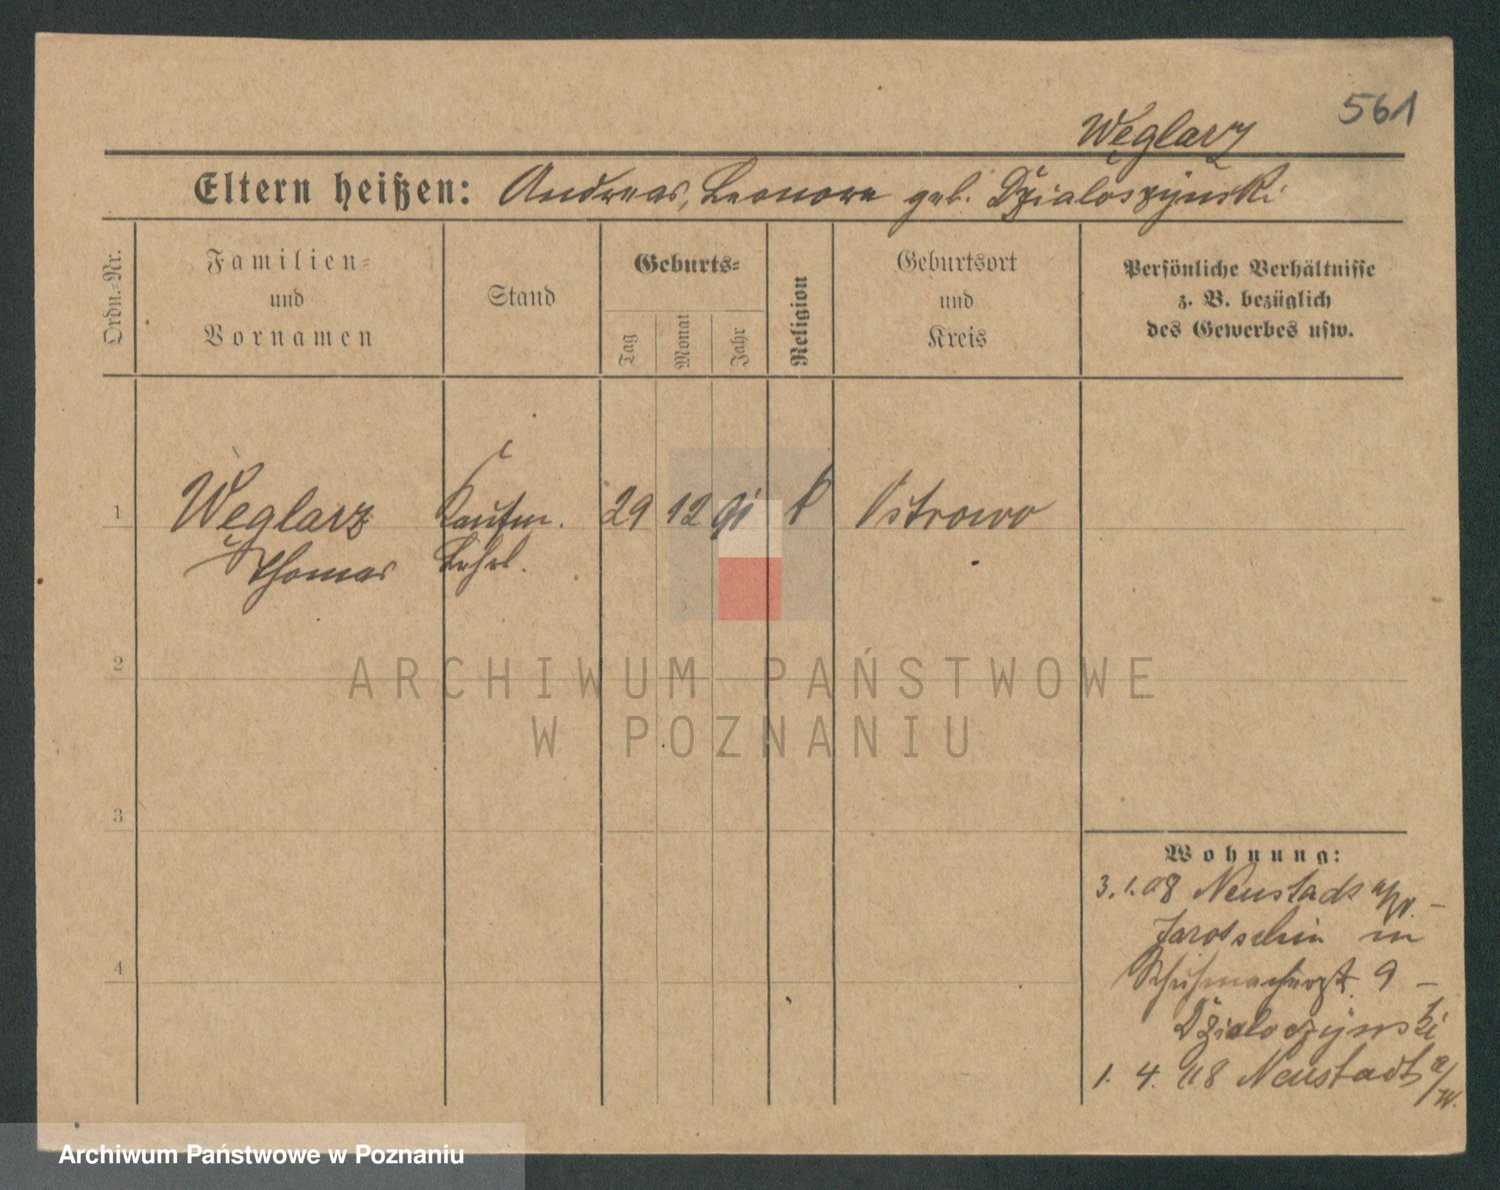 561
Węglarz
Eltern heißen: Andreas, Leonore geb. Działoszyński
Ordn.-Nr.
Familien-
und
Vornamen
Stand
Geburts-
Tag
Monat
Jahr
Religion
Geburtsort
und
Kreis
Persönliche Verhältnisse
z. B. bezüglich
des Gewerbes usw.
1
Węglarz Kaufm. 29 12 91 k Ostrowo
Thomas Lehrl.
2
3
4
Wohnung:
3.1.08 Neustadt
Jarotschin in
Schuhmacherst. 9 –
Działoszynski
1. 4. 08 Neustadt a/W.
ARCHIWUM PAŃSTWOWE
W POZNANIU
Archiwum Państwowe w Poznaniu